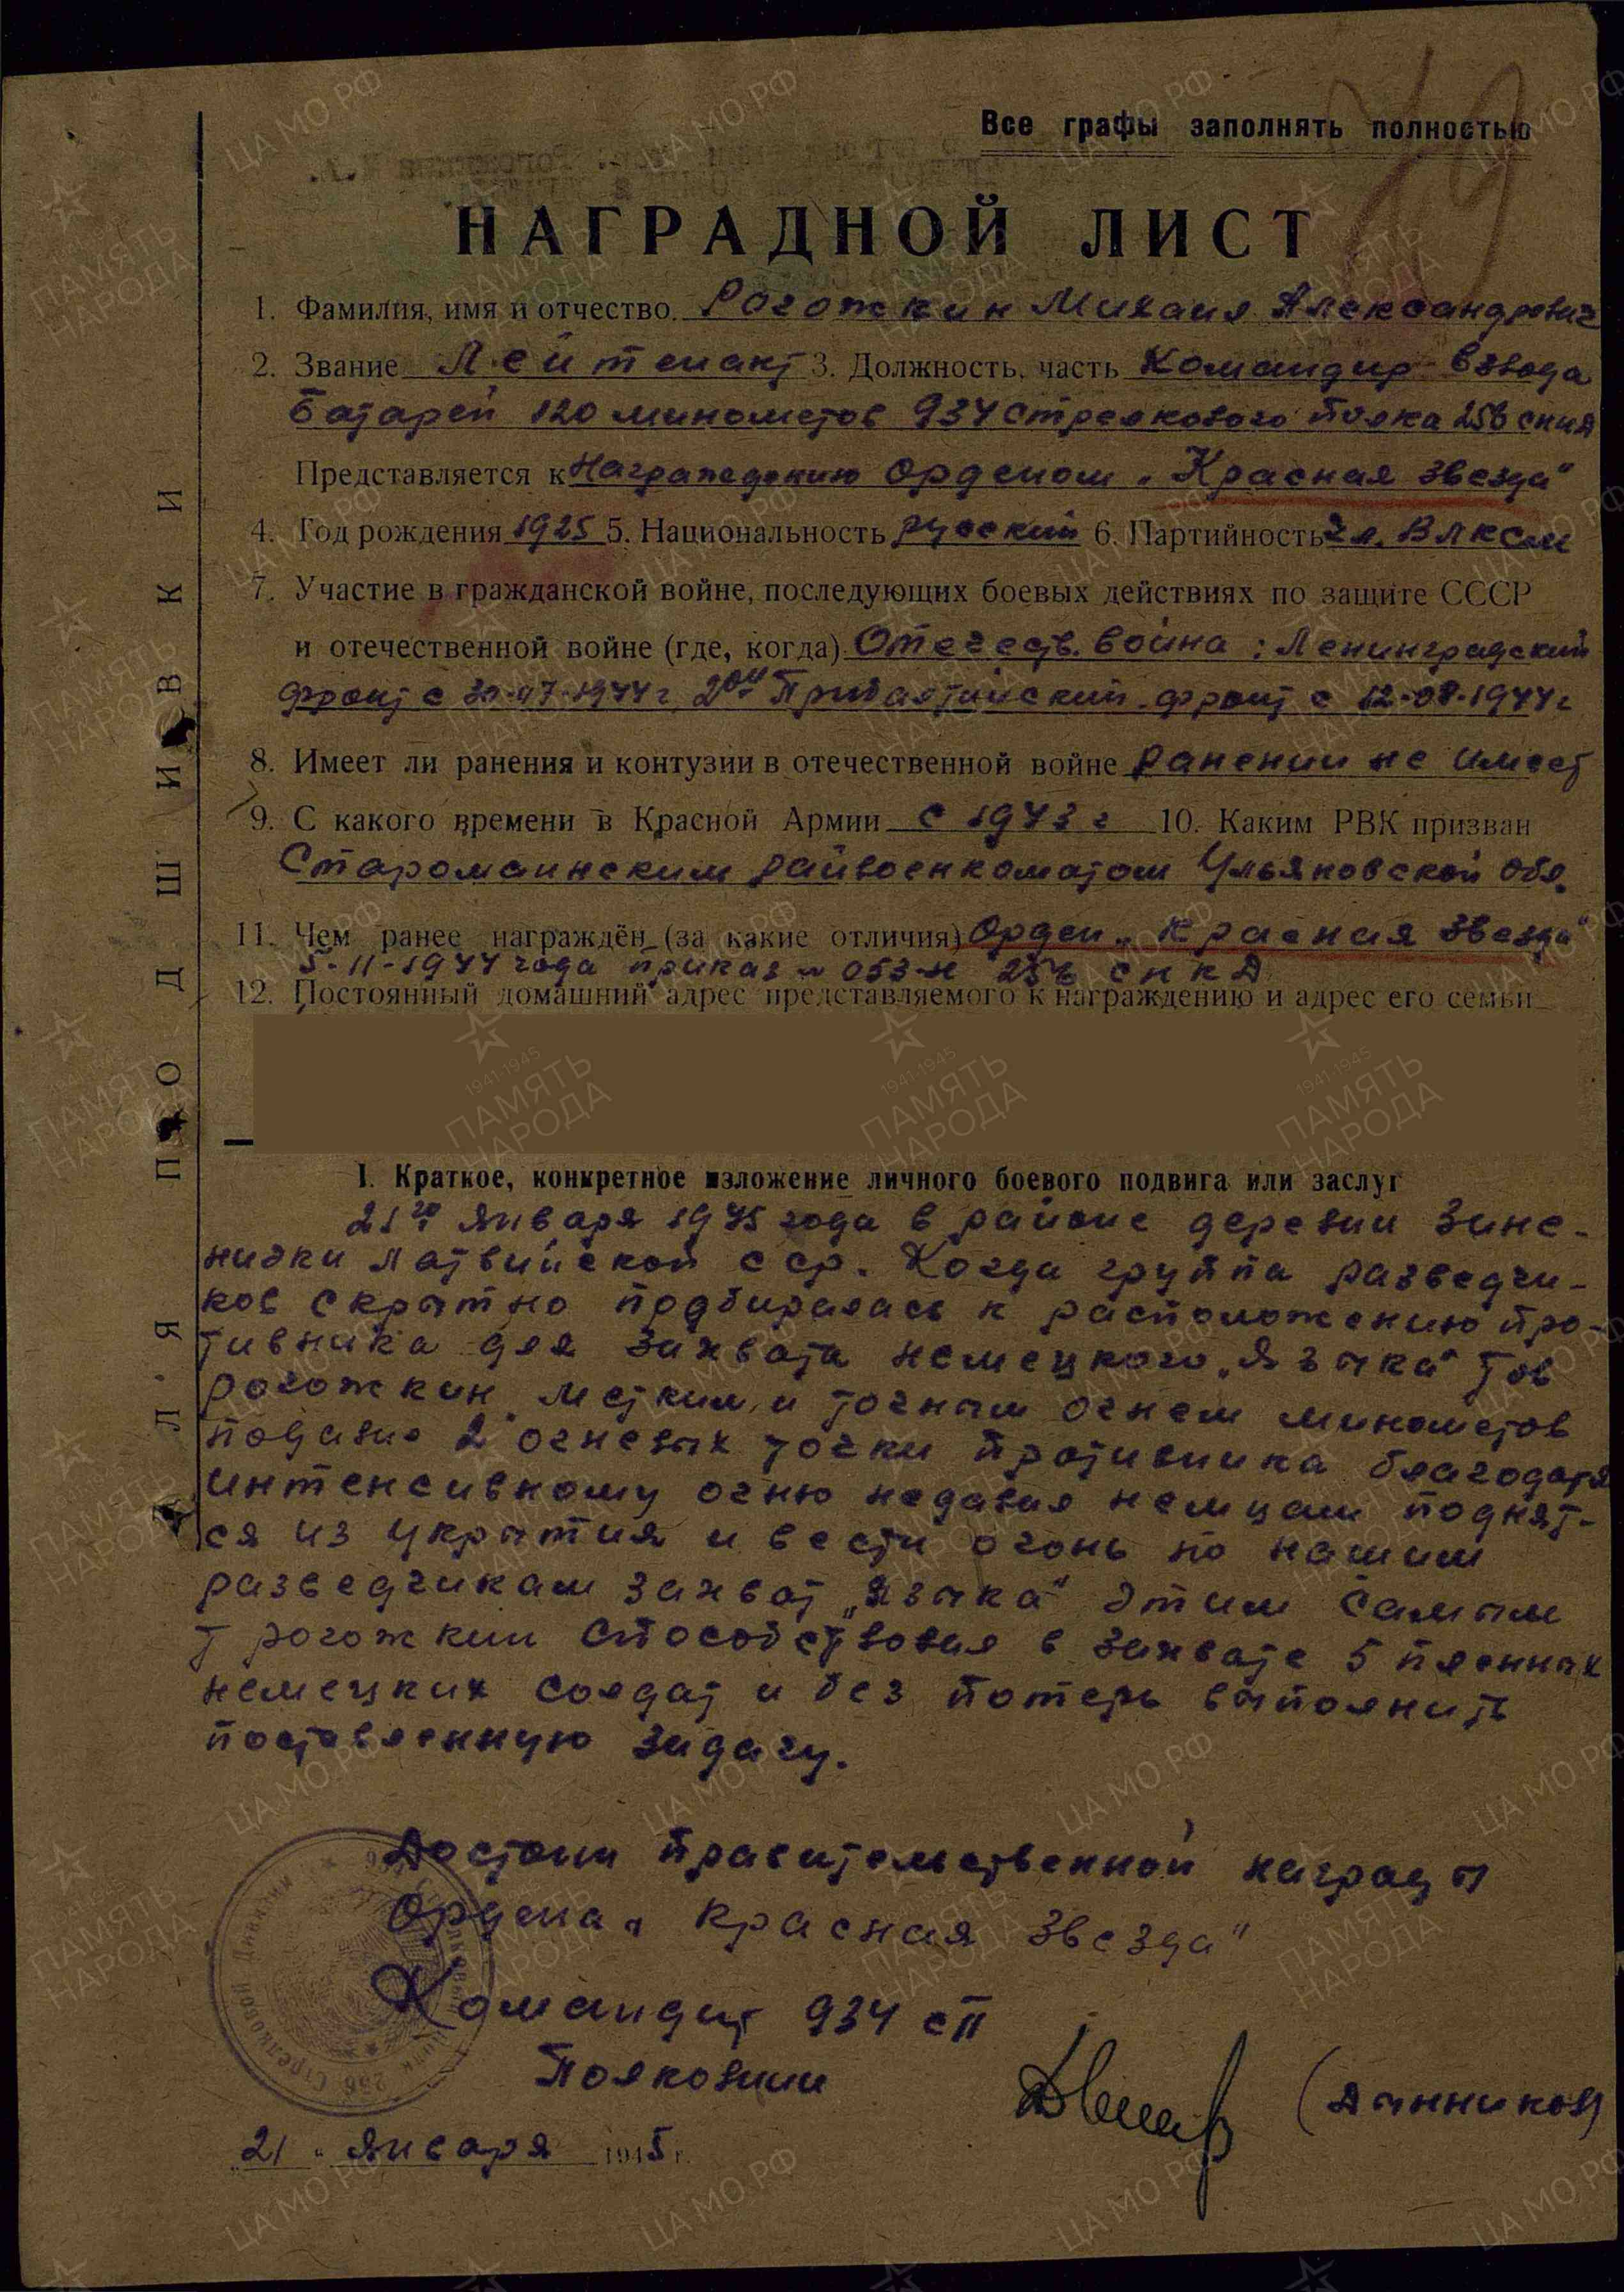 Все графы заполнять полностью
НАГРАДНОЙ ЛИСТ
1. Фамилия, имя и отчество. Рогожкин Михаил Александрович
2. Звание Лейтенант 3. Должность, часть Командир взвода
Батареи 120 минометов 934 стрелкового полка 256 снкд
Представляется к награждению орденом „Красная звезда"
4. Год рождения 1925 5. Национальность русский 6. Партийность чл. ВЛКСМ
7. Участие в гражданской войне, последующих боевых действиях по защите СССР
и отечественной войне (где, когда) Отечеств. война: Ленинградский
фронт с 1944г, 2ой Прибалтийский фронт с 12-08-1944г
8. Имеет ли ранения и контузии в отечественной войне ранений не имеет
9. С какого времени в Красной Армии с 1943 г 10. Каким РВК призван
Старомаинским райвоенкоматом Ульяновской обл.
11. Чем ранее награждён (за какие отличия) Орден „Красная звезда"
5-11-1944 года приказ № 053-н 256 снкд
12. Постоянный домашний адрес представляемого к награждению и адрес его семьи
I. Краткое, конкретное изложение личного боевого подвига или заслуг
21го января 1945 года в районе деревни Зине-
нидки Латвийской ССР. Когда группа разведчи-
ков скрытно подбиралась к расположению про-
тивника для захвата немецкого „языка" тов
Рогожкин метким и точным огнем минометов
подавил 2 огневых точки противника благодаря
интенсивному огню недавал немцам поднят-
ся из укрытия и вести огонь по нашим
разведчикам захват „языка" этим самым
т Рогожкин способствовал в захвате 5 пленных
немецких солдат и без потерь выполнить
поставленную задачу.
Достоин правительственной награды
Ордена „Красная звезда"
Командир 934 сп
Полковник
(Дынников)
„21" января 1945 г.
ДЛЯ ПОДШИВКИ
19
ПАМЯТЬ НАРОДА
1941-1945
ЦА МО РФ